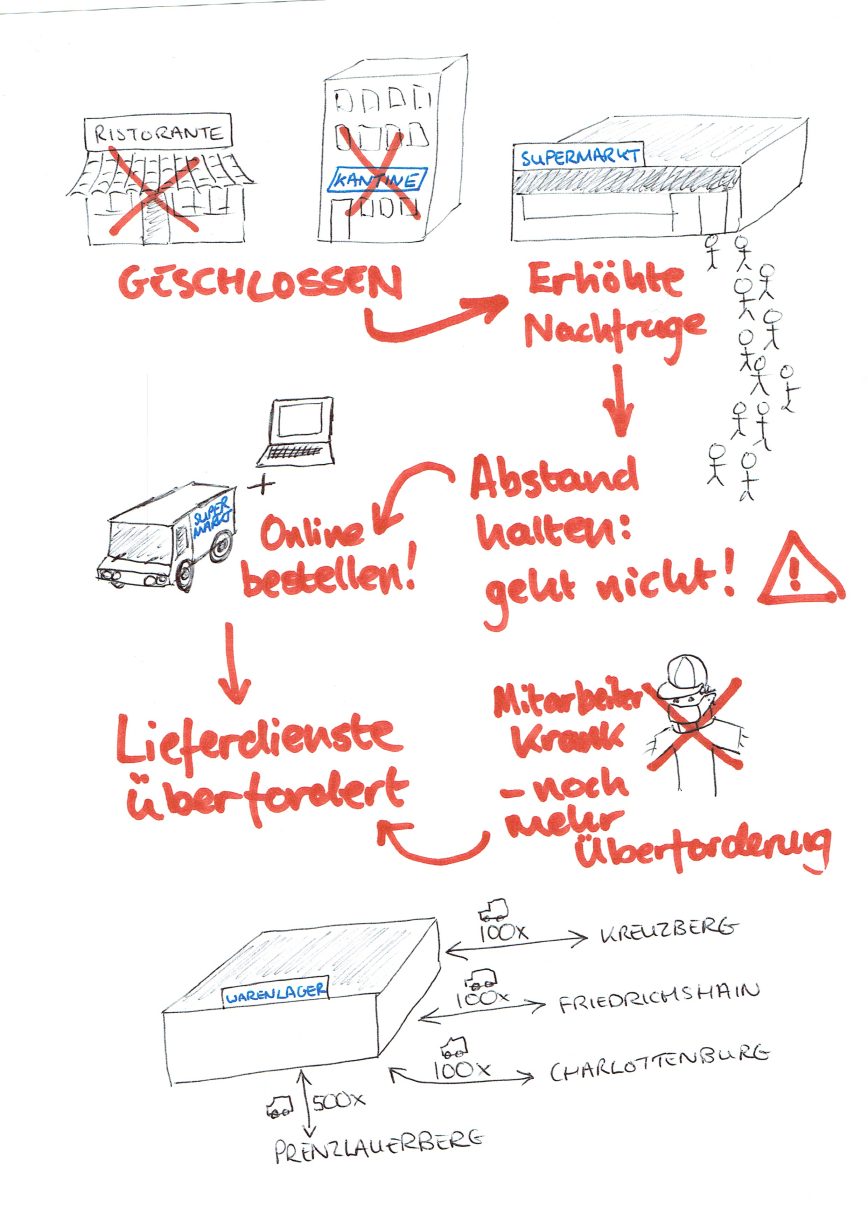 RISTORANTE
KANTINE
SUPERMARKT
GESCHLOSSEN
Erhöhte
Nachfrage
Abstand
halten:
geht nicht!
!
+
SUPER
MARKT
Online
bestellen!
Lieferdienste
überfordert
Mitarbeiter
Krank
- noch
mehr
Überforderung
WARENLAGER
100x
KREUZBERG
100x
FRIEDRICHSHAIN
100x
CHARLOTTENBURG
500x
PRENZLAUERBERG